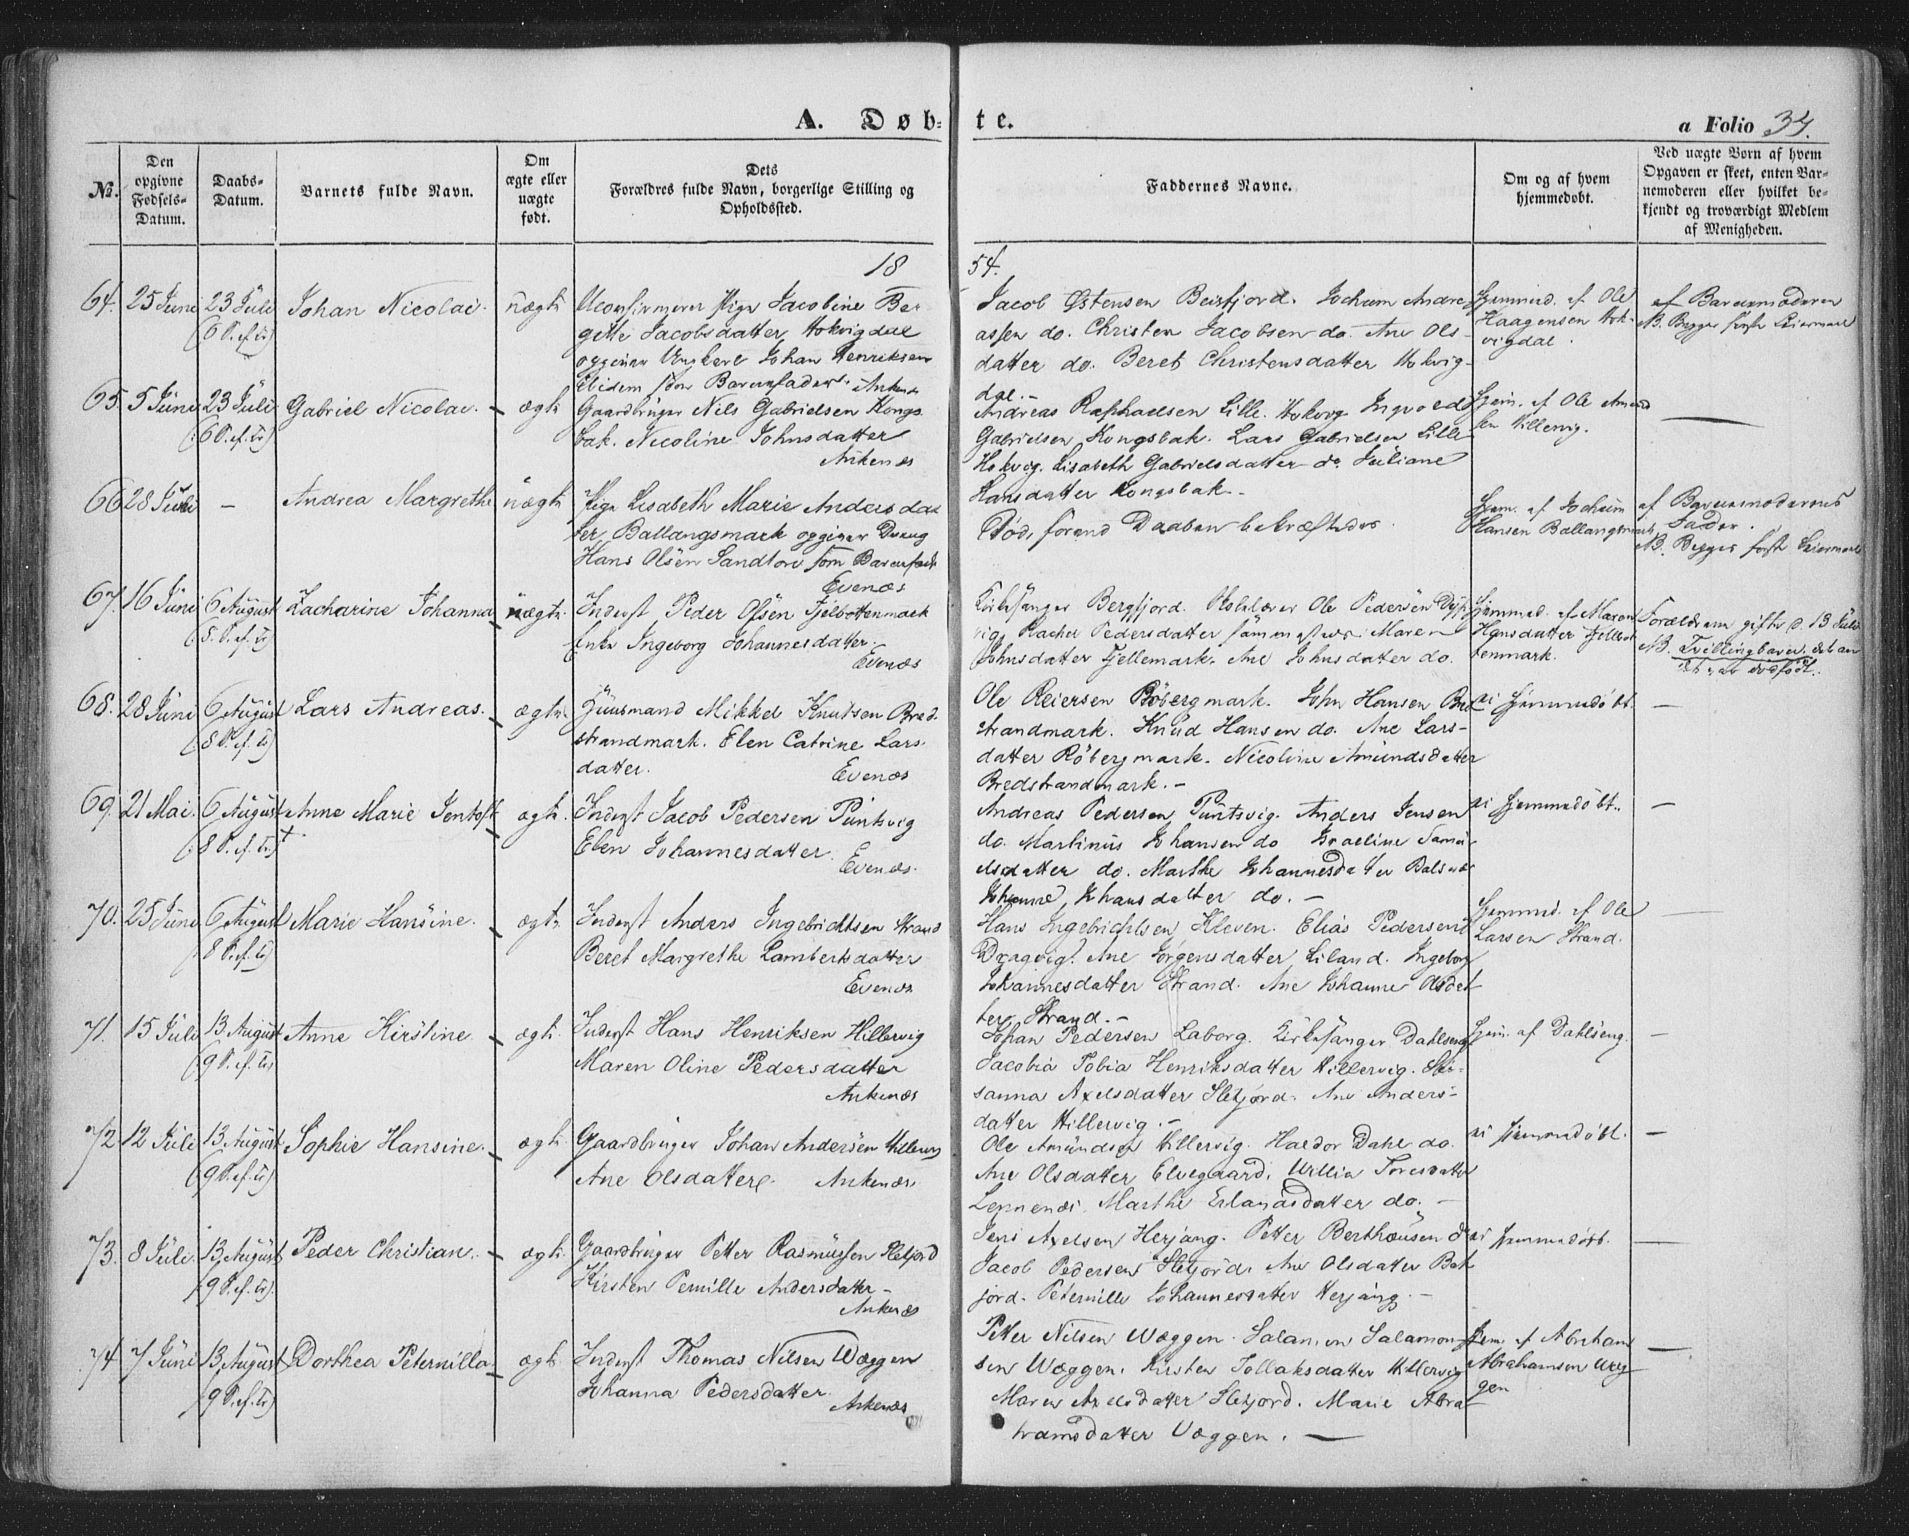 A. Døb=
te.
a Folio 34.
No.
Den opgivne Fødsels=Datum.
Daabs=Datum.
Barnets fulde Navn.
Om ægte eller uægte født.
Dets Forældres fulde Navn, borgerlige Stilling og Opholdssted.
Faddernes Navne.
Om og af hvem hjemmedøbt.
Ved uægte Børn af hvem Opgaven er skeet, enten Barnemoderen eller hvilket bekjendt og troværdigt Medlem af Menigheden.
18
54.
64. 25 Juni 23 Juli Johan Nicolai. uægte
(6 S. ef. Tr)
Uconfirmeret Pige Jacobine Ber-
gitte Jacobsdatter Hokvigdal
opgiver Ungkarl Johan Henriksen
ibidem som Barnefader. Ankenæs
Jacob Østensen Beisfjord. Jochum Andre-
assen do. Christen Jacobsen do. Ane Ols-
datter do. Beret Christensdatter Hokvig-
dal. -
Hjemmed. af Ole
Haagensen Hok-
vigdal.
af Barnemoderen
NB. Begges første Leiermaal
65. 5 Juni 23 Juli Gabriel Nicolai. - ægte
(6 S. ef. Tr)
Gaardbruger Nils Gabrielsen Kongs
bak. Nicoline Johnsdatter
Ankenæs
Andreas Raphaelsen Lille Hokvig. Ingvold
Gabrielsen Kongsbak. Lars Gabrielsen Lille
Hokvig. Lisabeth Gabrielsdatter do. Juliane
Hansdatter Kongsbak -
Hjem. af Ole Amund
sen Hillervig.
66 28 Juni - Andrea Margrethe uægte
Pige Lisabeth Marie Andersdat
ter Ballangsmark opgiver Dreng
Hans Olsen Sandtorv som Barnefader
Evenæs
Død, forend Daaben bekræftedes.
Hjem. af Jochum
Hansen Ballangsmark
af Barnemoderens
Fader.
NB. Begges første Leiermaal
67. 16 Juni 6 August Zacharine Johanna uægte.
(8. S. ef. Tr)
Inderst Peder Olsen Fjelbottenmark
Enke Ingeborg Johannesdatter.
Evenæs
Kirkesanger Bergfjord. Skolelærer Ole Pedersen Dyp
vig. Rachel Pedersdatter sammesteds. Maren
Johnsdatter Fjellemark. Ane Johnsdatter do.
Hjemmed. af Maren
Hansdatter Fjelbot
tenmark.
Forældrene gifte d. 13 Juli
NB. Tvillingbarn, det an
det var dødfødt.
68. 28 Juni 6 August Lars Andreas. - ægte
(8 S. ef. Tr)
Huusmand Mikkel Knutsen Bred-
strandmark. Elen Catrine Lars-
datter.
Evenæs
Ole Reiersen Røbergmark. John Hansen Bred
strandmark. Knud Hansen do. Ane Lars-
datter Røbergmark. Nicoline Amundsdatter
Bredstrandmark. -
ei hjemmedøbt. -
69. 21 Mai. 6 August Anne Marie Jentoft - ægte.
(8 S. ef. Tr)
Inderst Jacob Pedersen Puntsvig
Elen Johannesdatter.
Evenæs.
Andreas Pedersen Puntsvig. Anders Jensen
do. Martinus Johansen do Israeline Samu-
elsdatter do. Marthe Johannesdatter Balsnæs
Johanne Johansdatter do. -
ei hjemmedøbt. -
70. 25 Juni 6 August Marie Hansine. - ægte.
(8 S. ef. Tr)
Inderst Anders Ingebrichtsen Strand
Beret Margrethe Lambertsdatter
Evenæs
Hans Ingebrichtsen Kleven. Elias Pedersen
Dragvig. Ane Jørgensdatter Liland. Ingeborg
Johannesdatter Strand. Ane Johanne Olsdat
ter Strand. -
Hjemmed. af Ole
Larsen Strand.
71. 15 Juli 13 August Anne Kirstine - ægte.
(9 S. ef. Tr)
Inderst Hans Henriksen Hillervig
Maren Oline Pedersdatter
Ankenæs
Johan Pedersen Laborg. Kirkesanger Dahlseng
Jacobia Tobia Henriksdatter Hillervig. Su-
sanna Axelsdatter Sletjord. Ane Anders-
datter Hillervig. -
Hjem. af Dahlseng. -
72 12 Juli 13 August. Sophie Hansine. - ægte.
(9 S. ef. Tr)
Gaardbruger Johan Andersen Hillervig
Ane Olsdatter. Ankenæs
Ole Amundsen Hillervig. Haldor Dahl do.
Ane Olsdatter Elvegaard. Uellia Toresdatter
Lennenæs. Marthe Erlandsdatter do. -
ei hjemmedøbt. -
73. 8 Juli. 13 August Peder Christian. - ægte.
(9 S. ef. Tr)
Gaardbruger Petter Rasmussen Sletjord
Kirsten Pernille Andersdatter -
Ankenæs
Jens Axelsen Herjang. Petter Berthousen do
Jacob Pedersen Sletjord. Ane Olsdatter Bak
jord. Peternille Johannesdatter Herjang. -
ei hjemmedøbt. -
74. 7 Juni 13 August Dorthea Peternilla. - ægte.
(9 S. ef. Tr)
Inderst Thomas Nilsen Wæggen
Johanna Pedersdatter.
Ankenæs
Petter Nilsen Wæggen. Salamon Salamon-
sen Wæggen. Kirsten Tollaksdatter Hillervig
Maren Axelsdatter Sletjord. Marie Abra-
hamsdatter Væggen. -
Hjem. af Abraham
Abrahamsen Wæg
gen